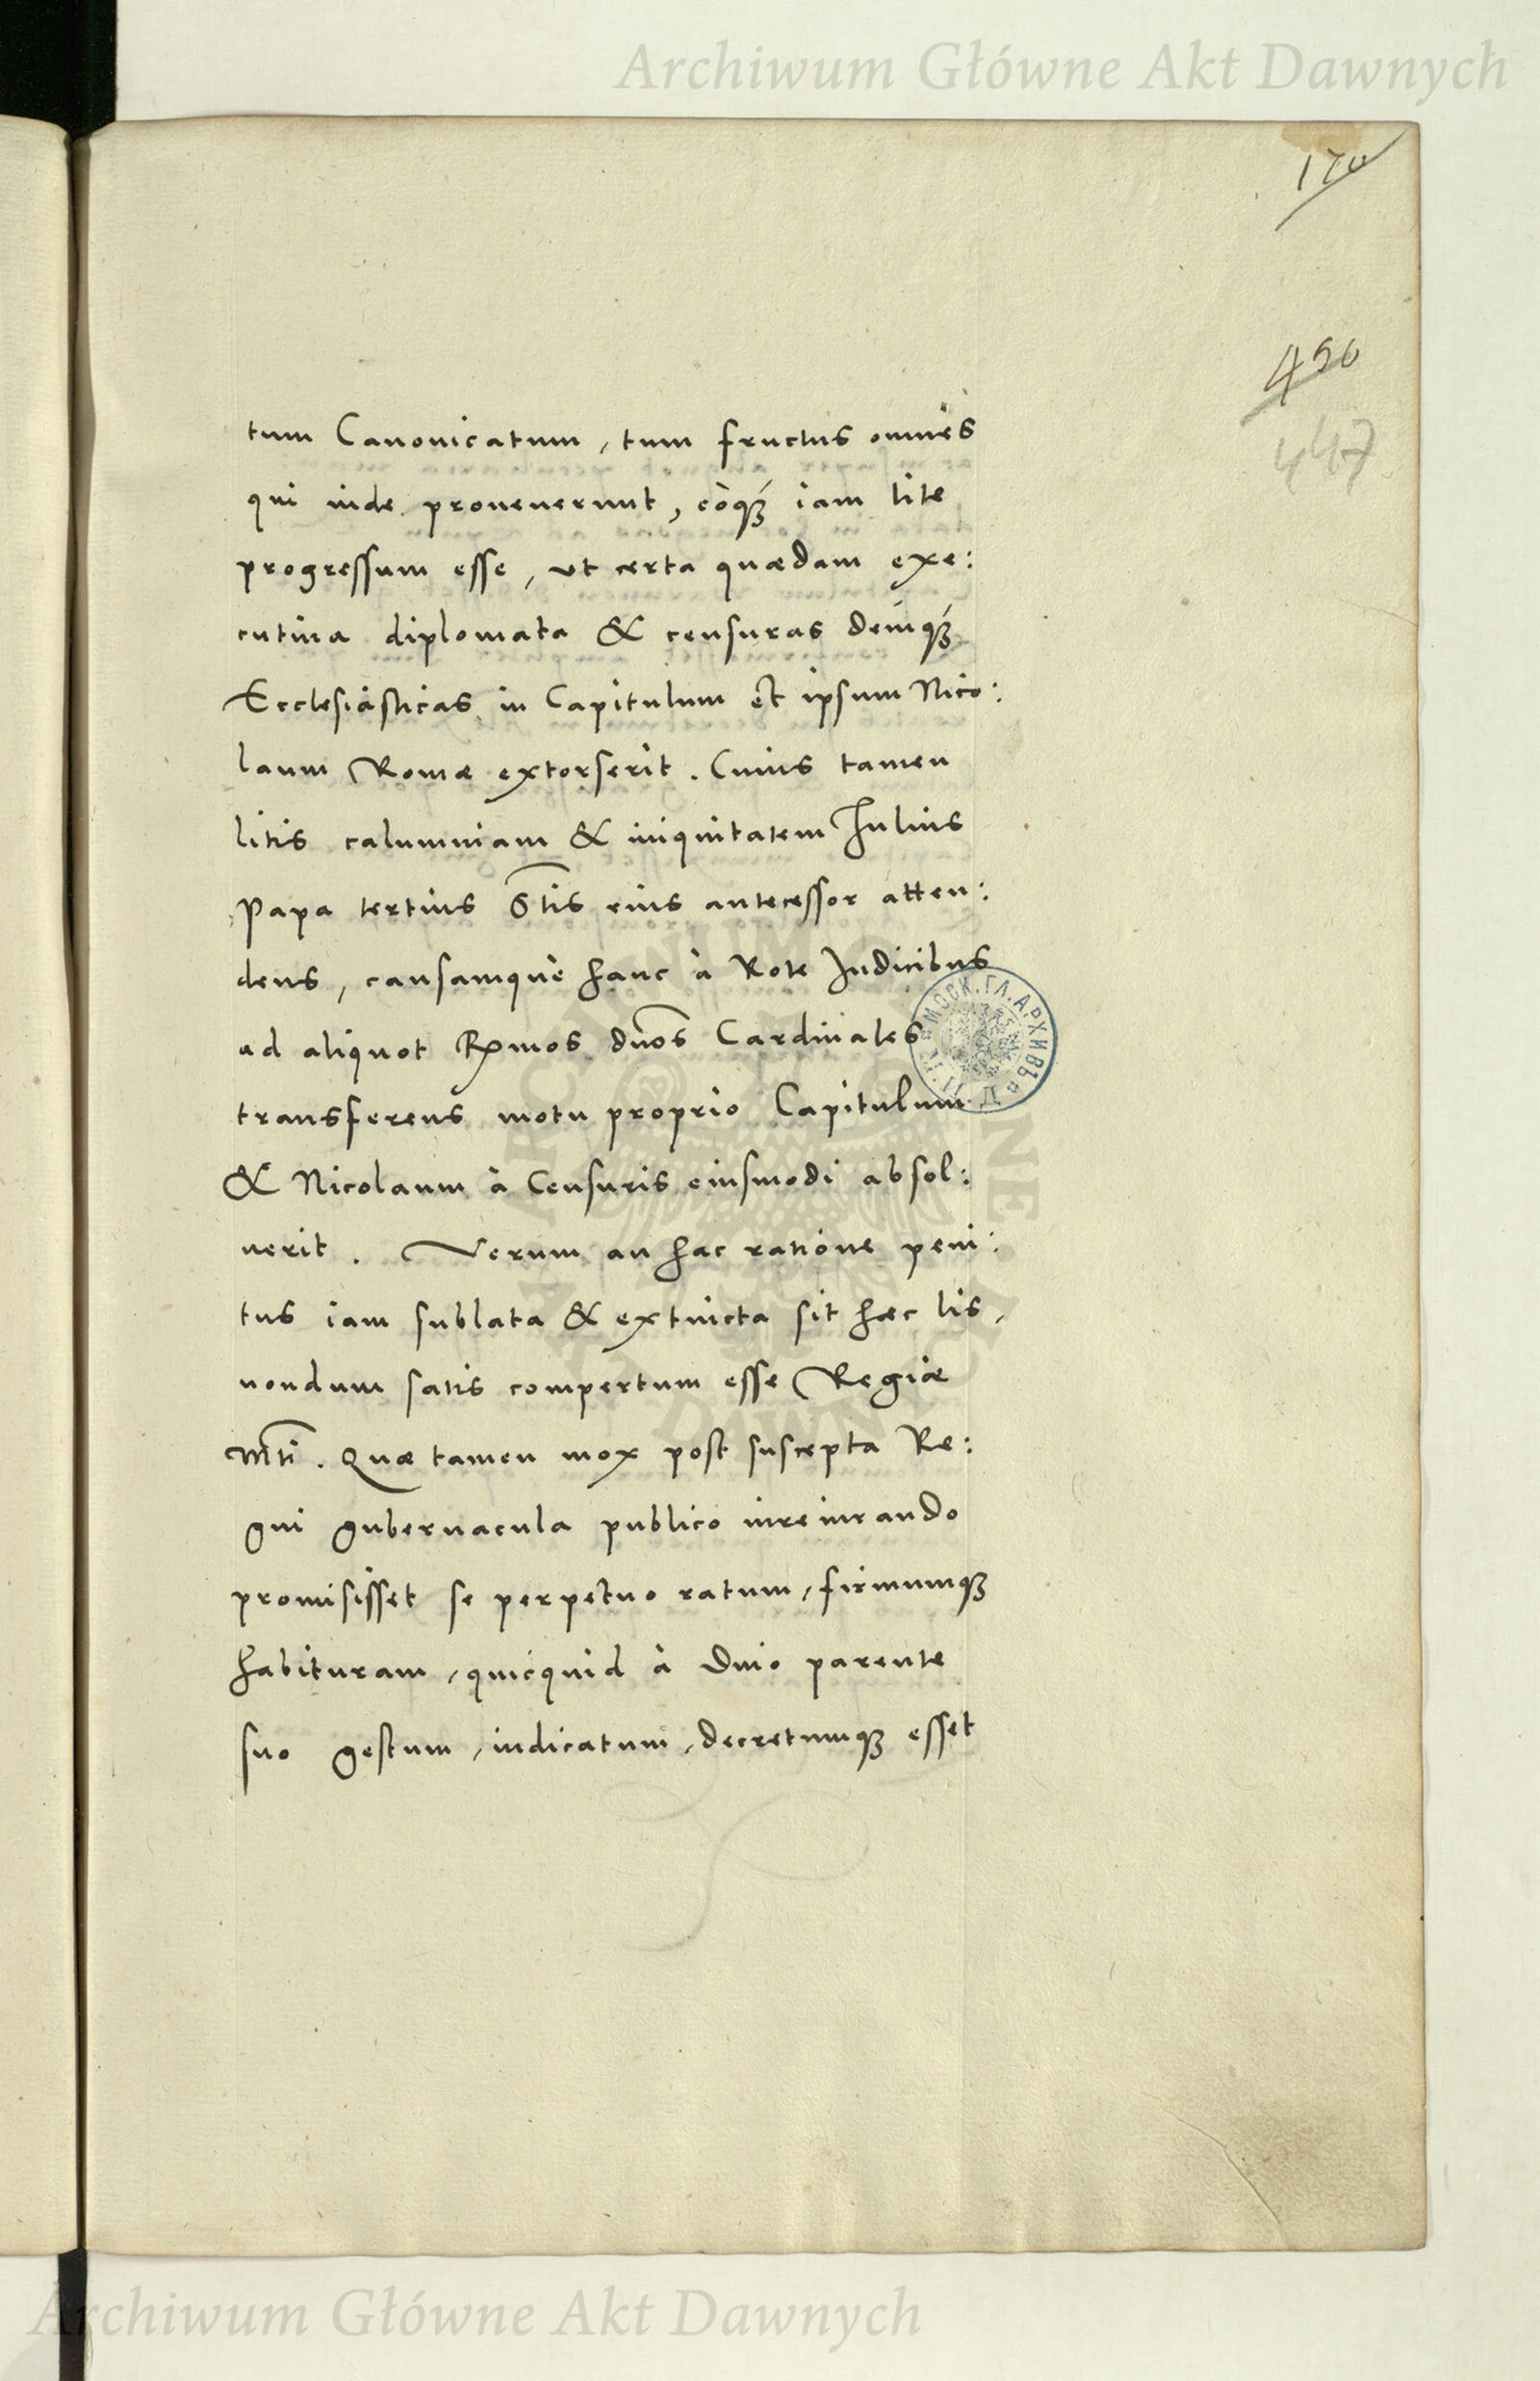 Archiwum Główne Akt Dawnych
170
450
447
tum Canonicatum, tum fructus omnes
qui inde provenerunt, eòq́ꝫ iam lite
progressum esse, ut certa quædam exe:
cutiva diplomata & censuras deniq́ꝫ
Ecclesiasticas in Capitulum et ipsum Nico:
laum Romæ extorserit. Cuius tamen
litis calumniam & iniquitatem Julius
Papa tertius S̃tis eius antecessor atten:
dens, causamquè hanc à Rote Judicibus
ad aliquot Rꝫmos dnõs Cardinales
transferens motu proprio Capitulum
& Nicolaum à Censuris eiusmodi absol:
uerit. Verum an hac ratione peni:
tus iam sublata & extincta sit hæc lis,
nondum satis compertum esse Regiæ
Mt̃i. Quæ tamen mox post suscepta Re:
gni gubernacula publico iureiurando
promisisset se perpetuo ratum, firmumqꝫ
habituram, quicquid à Divo parente
suo gestum, iudicatum, decretumqꝫ esset
МОСК. ГЛ. АРХИВЪ
ARCHIWUM GŁÓWNE AKT DAWNYCH
Archiwum Główne Akt Dawnych